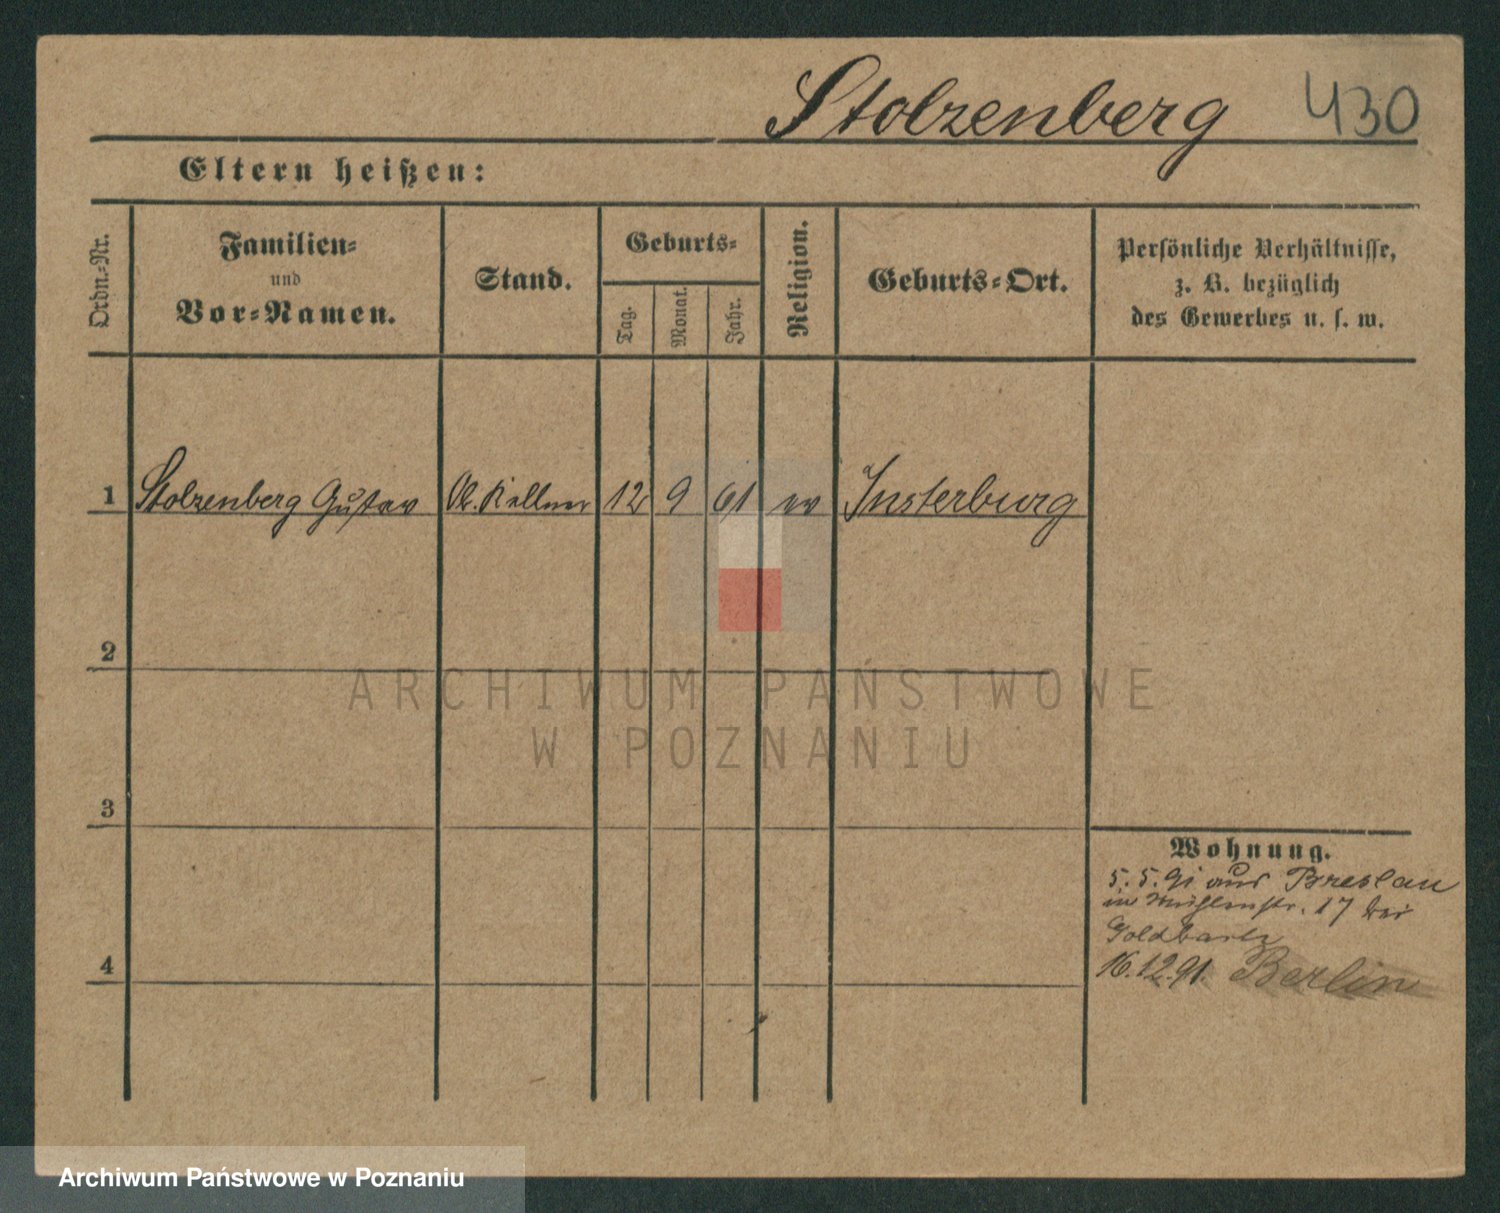 Stolzenberg 430
Eltern heißen:
Ordn.-Nr.
Familien-
und
Vor-Namen.
Stand.
Geburts-
Tag.
Monat.
Jahr.
Religion.
Geburts-Ort.
Persönliche Verhältnisse,
z. B. bezüglich
des Gewerbes u. s. w.
1 Stolzenberg Gustav Ob. Kellner 12 9 61 ev Insterburg
2
3
4
Wohnung.
5. 5. 91 aus Breslau
in Mühlenstr. 17 bei
16.12.91. Berlin
ARCHIWUM PAŃSTWOWE
W POZNANIU
Archiwum Państwowe w Poznaniu